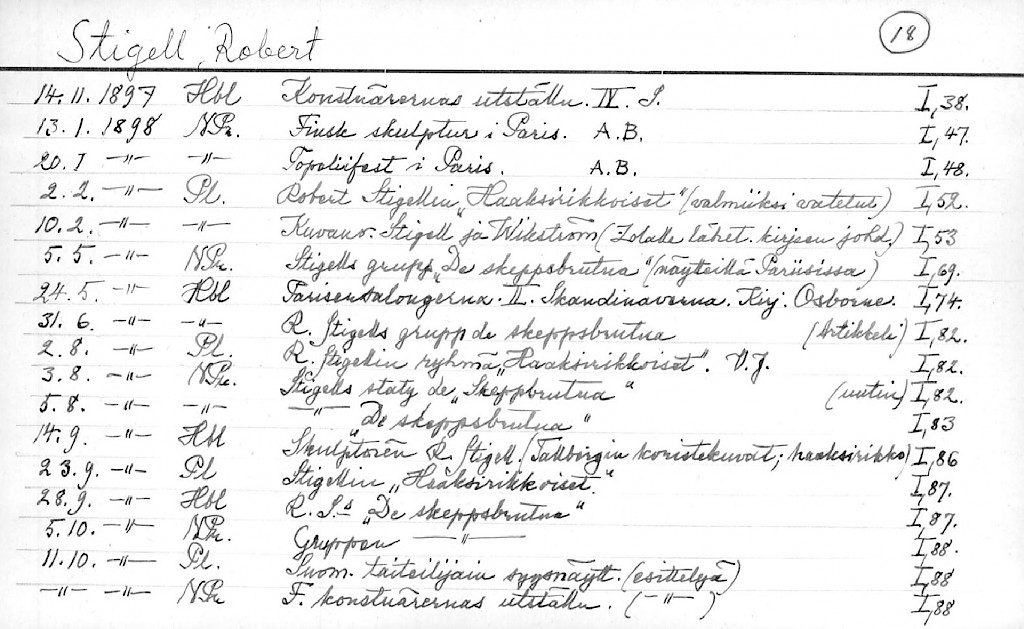 Stigell, Robert 18
14.11.1897 Hbl Konstnärernas utställn. IV. S. I,38.
13.1.1898 NPr. Finsk skulptur i Paris. A.B. I,47.
20.I -"- -"- Topeliifest i Paris. A.B. I,48.
2.2. -"- Pl. Robert Stigellin „Haaksirikkoiset" (valmiiksi valetut) I,52.
10.2. -"- -"- Kuvanv. Stigell ja Wikström (Zolalle lähet. kirjeen johd.) I,53
5.5. -"- NPr. Stigells grupp „De skeppsbrutna" (näytteillä Pariisissa) I,69.
24.5. -"- Hbl Parisersalongerna. II. Skandinaverna. Kirj. Osborne. I,74.
31.6. -"- -"- R. Stigells grupp de skeppsbrutna (Artikkeli) I,82.
2.8. -"- Pl. R. Stigellin ryhmä „Haaksirikkoiset". V.J. I,82.
3.8. -"- NPr. Stigells staty de „Skeppbrutna" (uutin) I,82.
5.8. -"- -"- -"- „De skeppsbrutna" I,83
14.9. -"- Hbl Skulptören R. Stigell. (Tallbergin koristekuvat; haaksirikko) I,86
23.9. -"- Pl Stigellin „Haaksirikkoiset." I,87.
28.9. -"- Hbl R. S:s „De skeppsbrutna" I,87.
5.10. -"- NPr. Gruppen -"- I,88.
11.10. -"- Pl. Suom. taiteilijain syysnäytt. (esittelyä) I,88
-"- -"- NPr F. konstnärernas utställn. (-"-) I,88